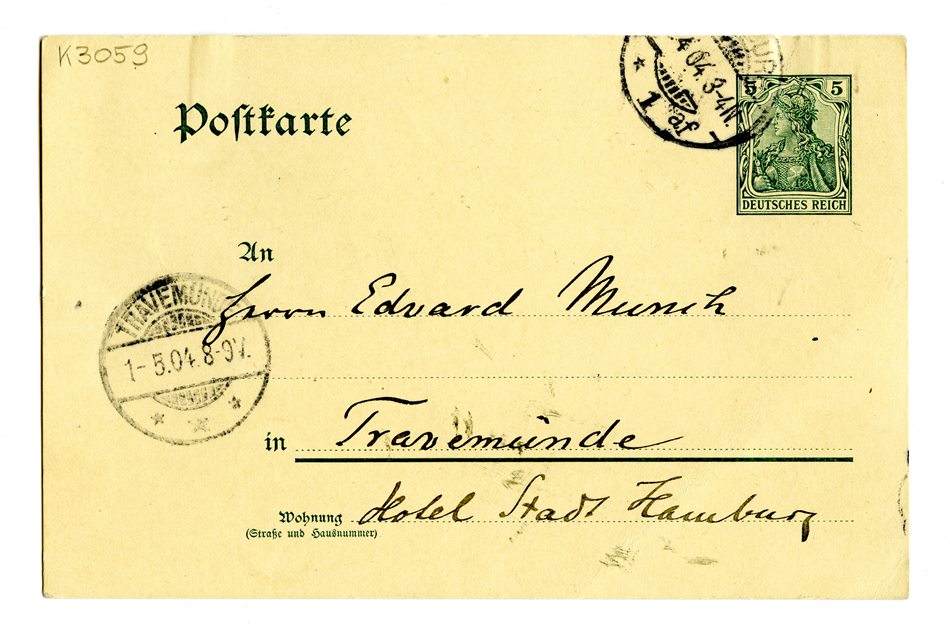 K3059
Poſtkarte
4 04. 3-4N.
1. af
5 5
DEUTSCHES REICH
An
Herrn Edvard Munch
TRAVEMÜNDE
1-5.04. 8-9V.
in Travemünde
Wohnung Hotel Stadt Hamburg
(Straße und Hausnummer)